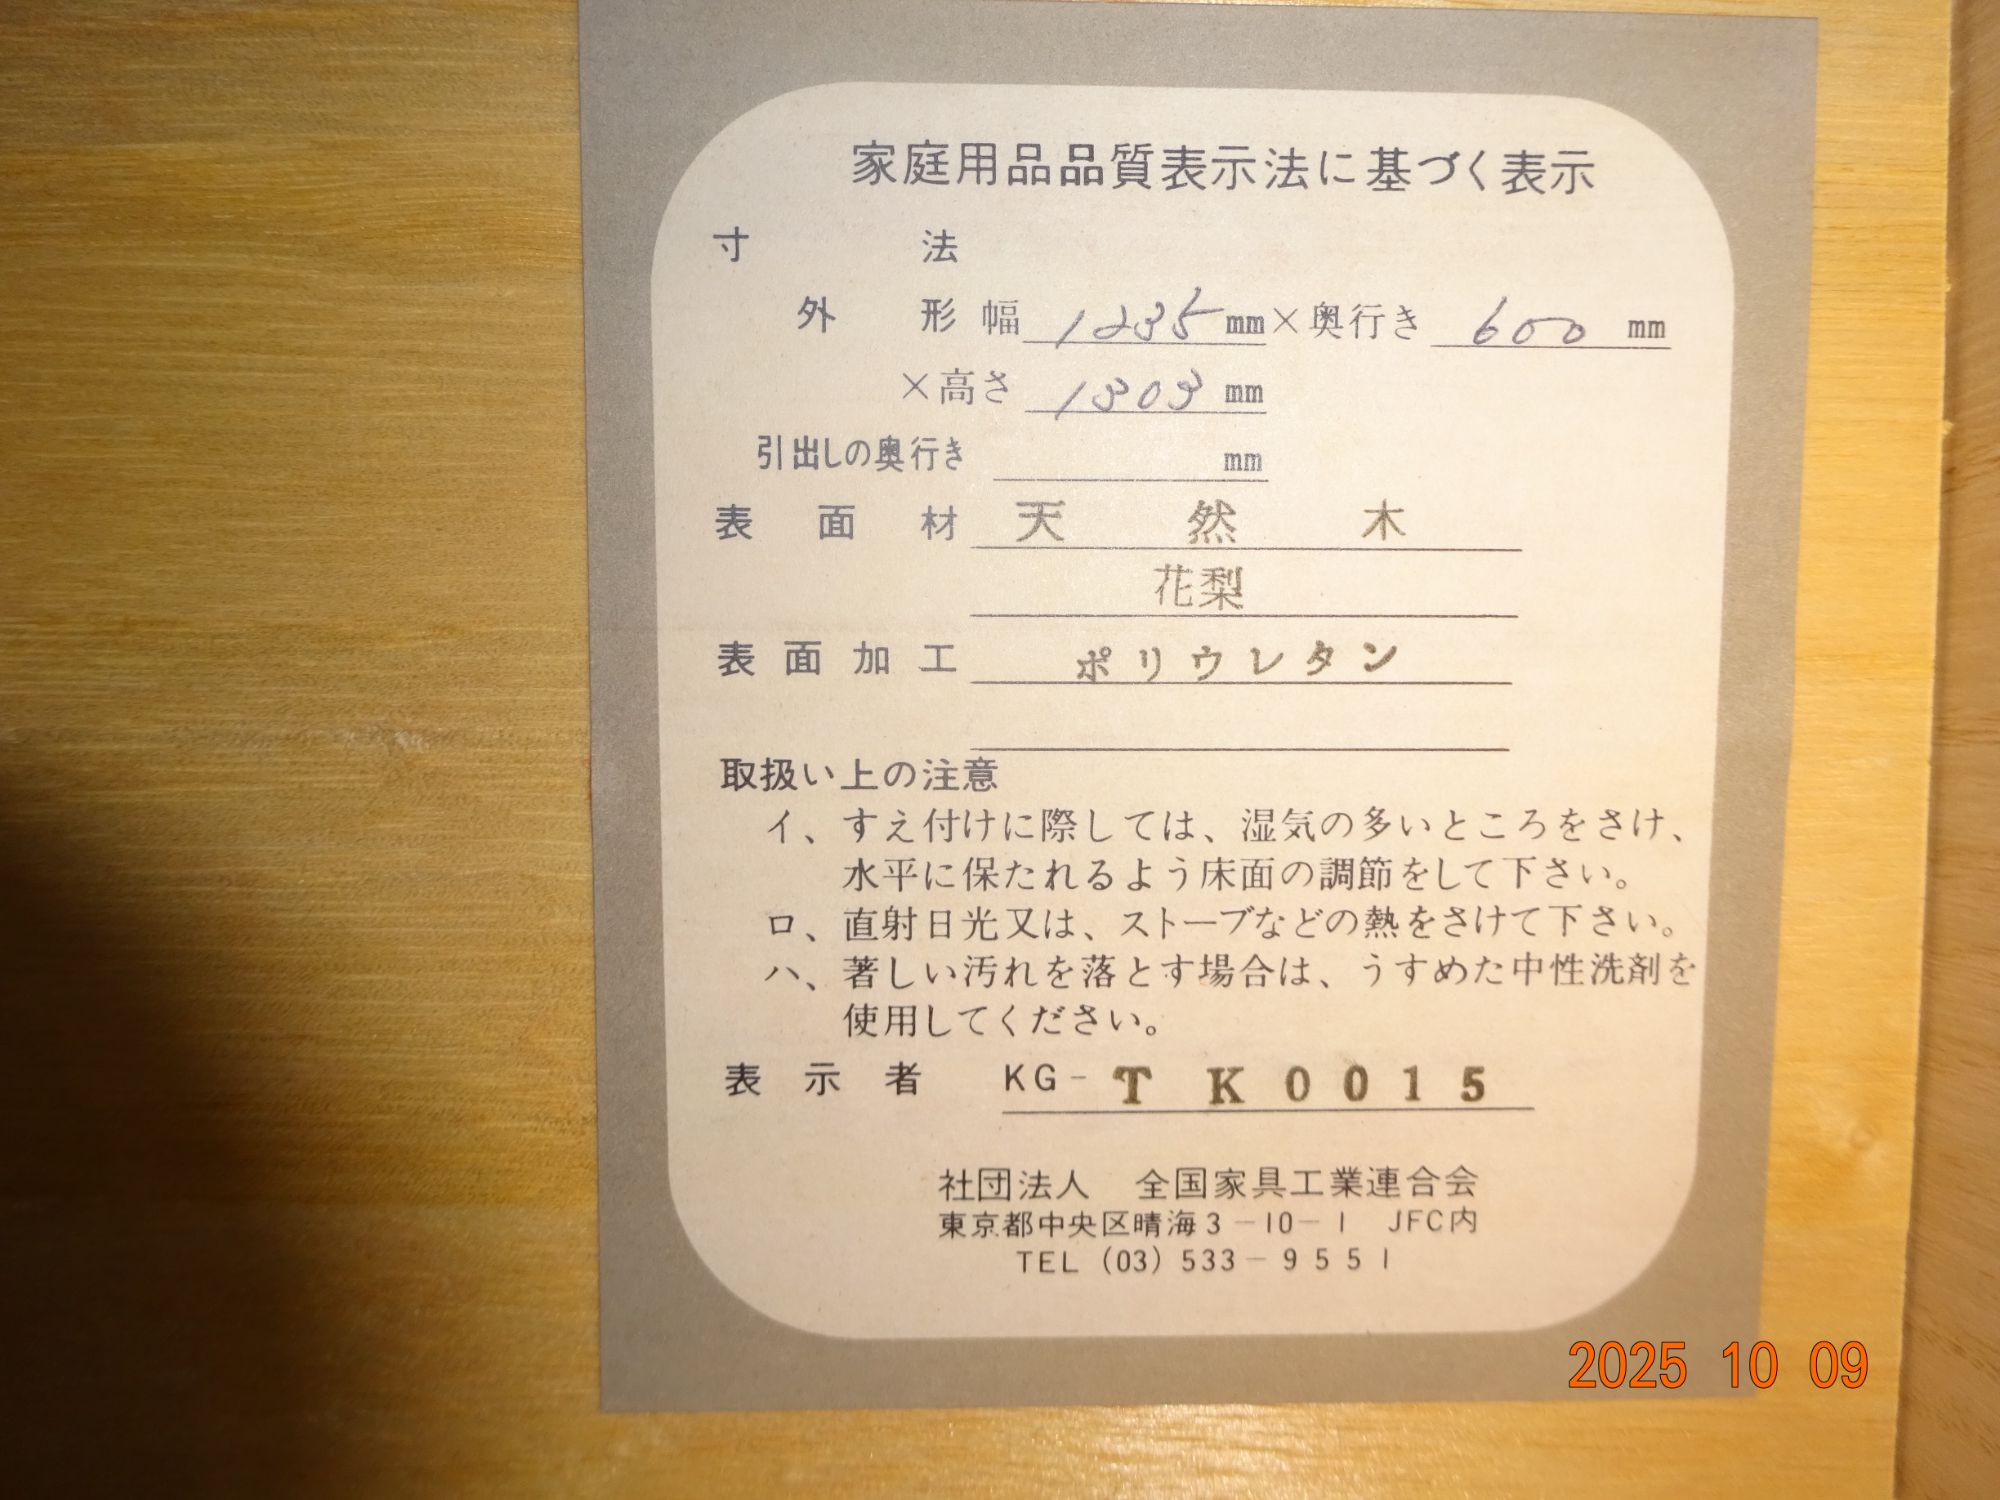 家庭用品品質表示法に基づく表示
寸法
外形 幅 1235 mm×奥行き 600 mm
×高さ 1303 mm
引出しの奥行き mm
表面材 天然木
花梨
表面加工 ポリウレタン
取扱い上の注意
イ、すえ付けに際しては、湿気の多いところをさけ、
水平に保たれるよう床面の調節をして下さい。
ロ、直射日光又は、ストーブなどの熱をさけて下さい。
ハ、著しい汚れを落とす場合は、うすめた中性洗剤を
使用してください。
表示者 KG-TK0015
社団法人 全国家具工業連合会
東京都中央区晴海3-10-1 JFC内
TEL (03) 533-9551
2025 10 09